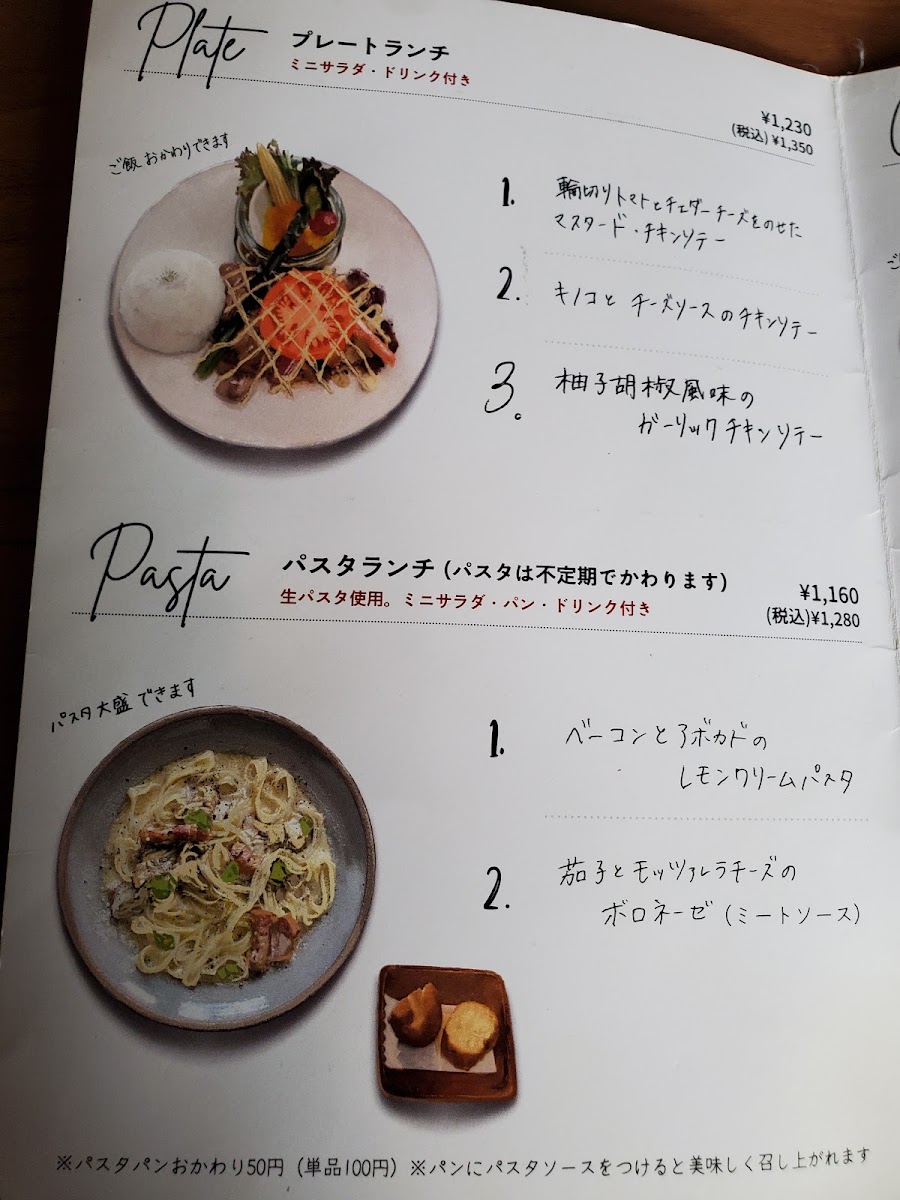 Plate
プレートランチ
ミニサラダ・ドリンク付き
¥1,230
(税込) ¥1,350
ご飯 おかわりできます
1. 輪切りトマトとチェダーチーズをのせた
マスタード・チキンソテー
2. キノコと チーズソースのチキンソテー
3. 柚子胡椒風味の
ガーリックチキンソテー
Pasta
パスタランチ (パスタは不定期でかわります)
生パスタ使用。ミニサラダ・パン・ドリンク付き
¥1,160
(税込)¥1,280
パスタ大盛できます
1. ベーコンとアボカドの
レモンクリームパスタ
2. 茄子とモッツァレラチーズの
ボロネーゼ (ミートソース)
※パスタパンおかわり50円 (単品100円) ※パンにパスタソースをつけると美味しく召し上がれます